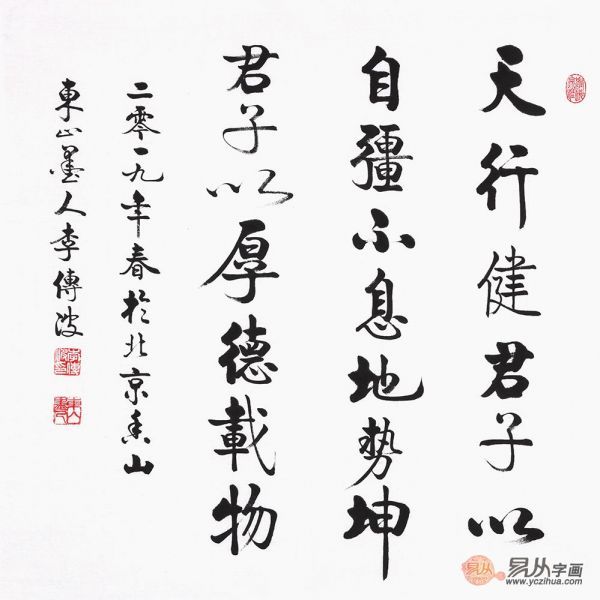 天行健君子以
自彊不息地势坤
君子以厚德載物
二零一九年春於北京香山
東山墨人李傳波
易从字画
www.yczihua.com